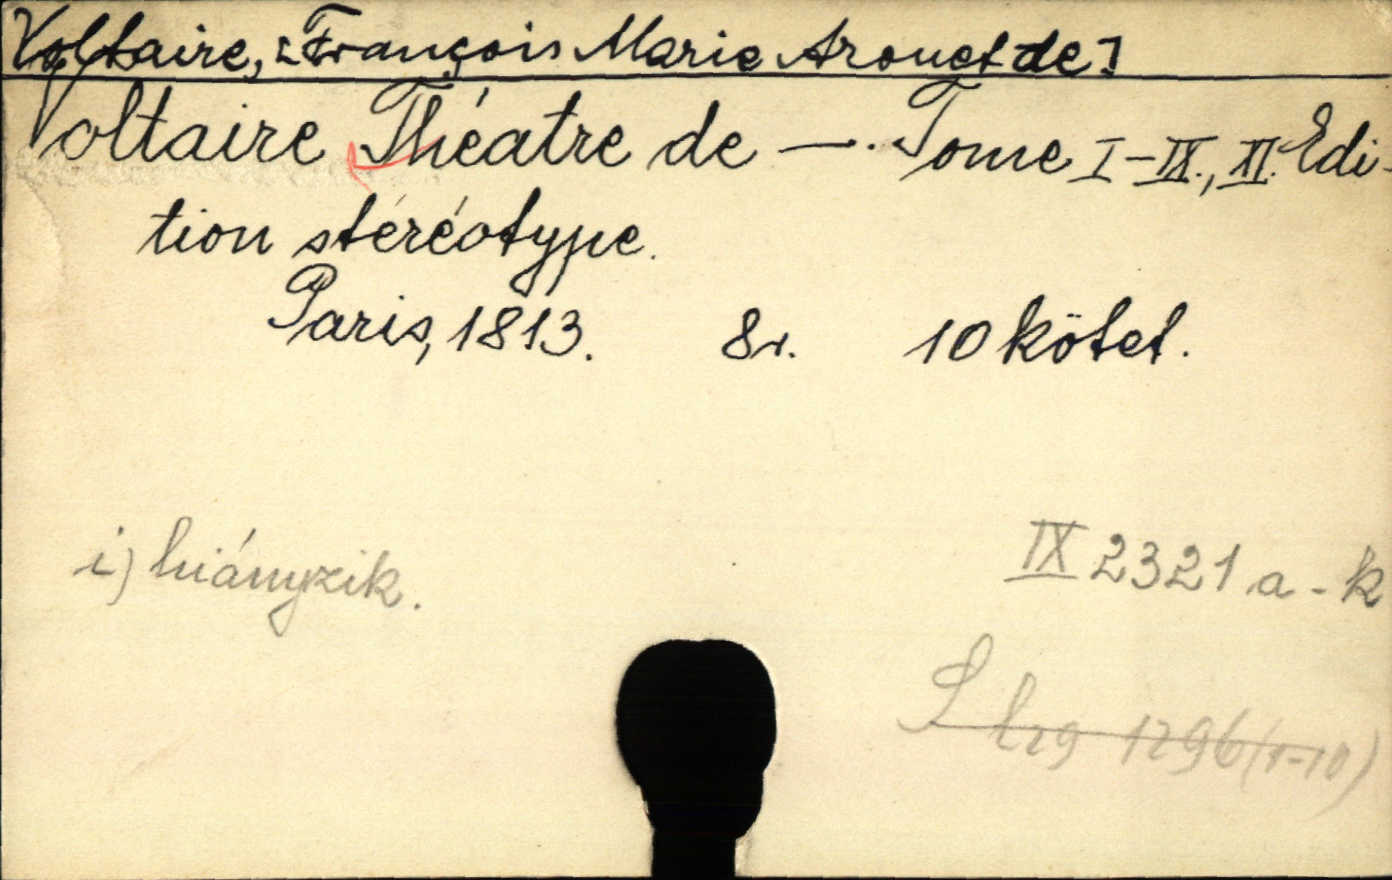 Voltaire, [François Marie Arouet de]
Voltaire Théatre de —. Tome I-IX., XI. Edi-
tion stéréotype.
Paris, 1813. 8r. 10 kötet.
i) hiányzik.
IX 2321 a - k
L l29 1296 (1-10)